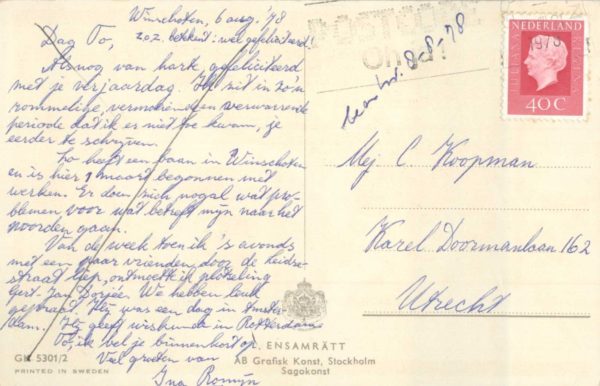 Winschoten, 6 aug. '78
Dag To, z.o.z. betekent: wel gefeliciteerd!
Alsnog van harte gefeliciteerd
met je verjaardag. Ik zit in zo'n
rommelige, vermoeiende en verwarrende
periode dat ik er niet toe kwam, je
eerder te schrijven.
heeft een baan in Winschoten
en is hier 1 maart begonnen met
werken. Er doen zich nogal wat pro-
blemen voor wat betreft mijn naar het
noorden gaan.
Van de week toen ik 's avonds
met een paar vrienden door de Leidse-
straat liep, ontmoette ik plotseling
Gert-Jan Dorjée. We hebben leuk
gepraat. Hij was een dag in Amster-
dam. Hij geeft wiskunde in Rotterdam
To, ik bel je binnenkort op
Vele groeten van
Ina Romijn
beantw. 8-8-'78
NEDERLAND
JULIANA REGINA
1978
40 C
Mej C Koopman
Karel Doormanlaan 162
Utrecht
L. ENSAMRÄTT
AB Grafisk Konst, Stockholm
Sagokonst
GK 5301/2
PRINTED IN SWEDEN